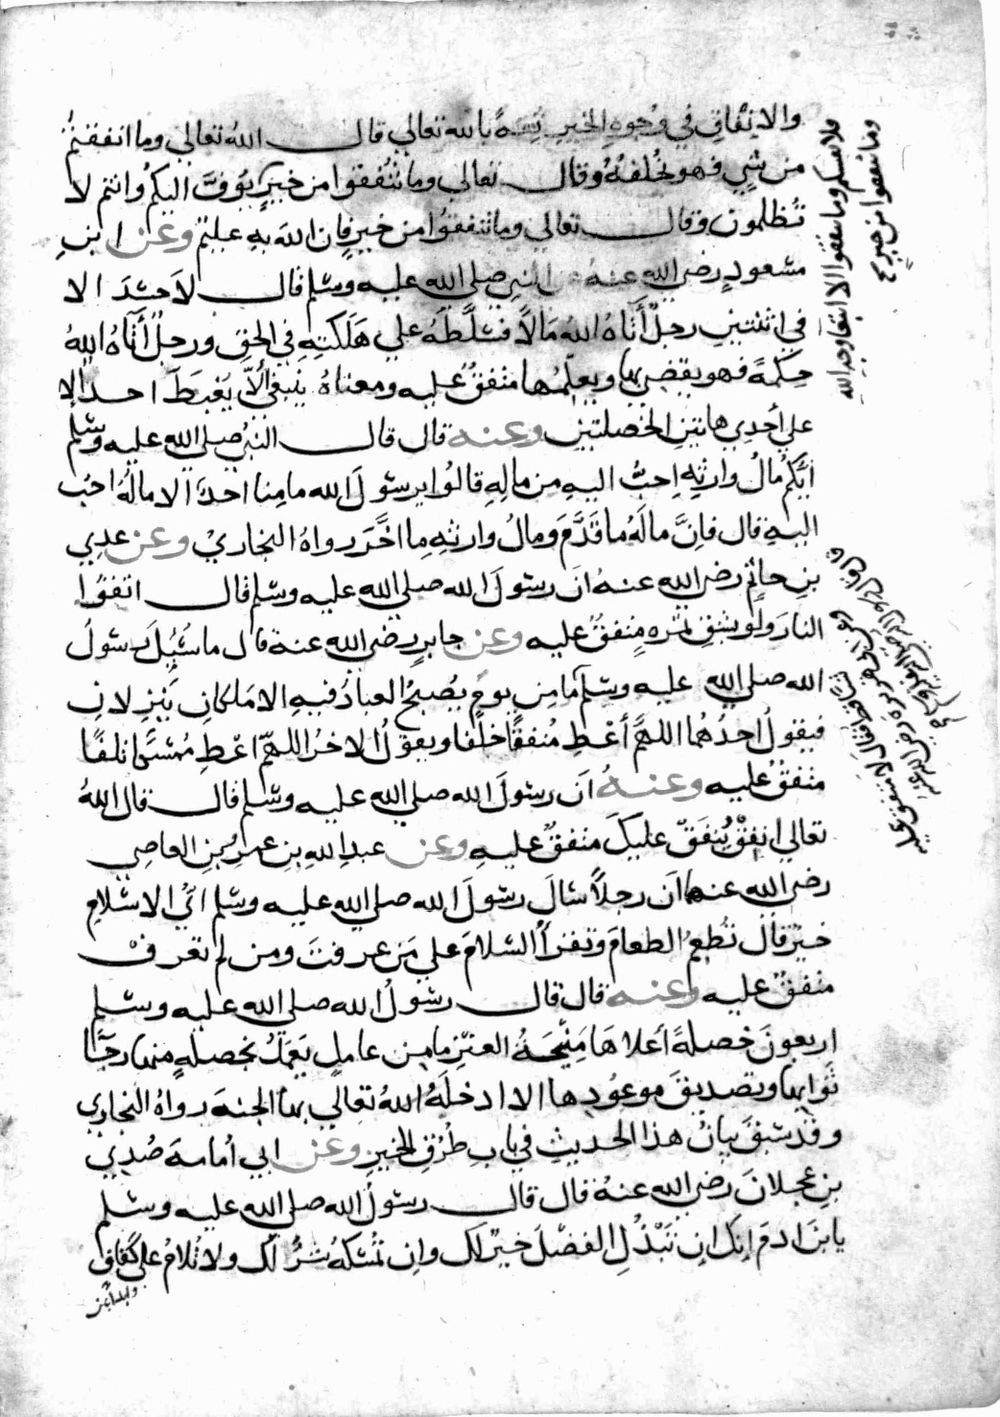 والانفاق في وجوه الخير ثقةً بالله تعالي قال الله تعالي وما انفقتم
من شيء فهو يخلفه وقال تعالي وما تنفقوا من خير يوف اليكم وانتم لا
تظلمون وقال تعالي وما تنفقوا من خير فان الله به عليم وعن ابن
مسعود رضي الله عنه عن النبي صلي الله عليه وسلم قال لا حسد الا
في اثنتين رجل أتاه الله مالا فسلطه علي هلكته في الحق ورجل أتاه الله
حكمة فهو يقضي بها ويعلمها متفق عليه ومعناه ينبغي ألا يغبط احد الا
علي أحدي هاتين الخصلتين وعنه قال قال النبي صلي الله عليه وسلم
ايكم مال وارثه احب اليه من ماله قالوا يرسول الله ما منا احد الا ماله احب
اليه قال فان ماله ما قدم ومال وارثه ما اخر رواه البخاري وعن عدي
بن حاتم رضي الله عنه ان رسول الله صلي الله عليه وسلم قال اتقوا
النار ولو بشق تمره متفق عليه وعن جابر رضي الله عنه قال ما سئل رسول
الله صلي الله عليه وسلم ما من يوم يصبح العباد فيه الا ملكان ينزلان
فيقول احدهما اللهم أعط منفقا خلفا ويقول الاخر اللهم اعط ممسكا تلفا
متفق عليه وعنه ان رسول الله صلي الله عليه وسلم قال قال الله
تعالي انفق ينفق عليك متفق عليه وعن عبد الله بن عمرو بن العاصي
رضي الله عنهما ان رجلا سال رسول الله صلي الله عليه وسلم اي الاسلام
خير قال تطعم الطعام وتقرأ السلام علي من عرفت ومن لم تعرف
متفق عليه وعنه قال قال رسول الله صلي الله عليه وسلم
اربعون خصلة أعلاها منيحة العنز ما من عامل يعمل بخصلة منها رجا
ثوابها وتصديق موعودها الا ادخله الله تعالي بها الجنة رواه البخاري
وقد سبق بيان هذا الحديث في باب طرق الخير وعن ابي أمامة صدي
بن عجلان رضي الله عنه قال قال رسول الله صلي الله عليه وسلم
يابن ادم إنك إن تبذل الفضل خير لك وان تمسكه شر لك ولا تلام علي كفاف
وابدا بمن
وما تنفقوا من خير
فلانفسكم وما تنفقوا الا ابتغا وجه الله